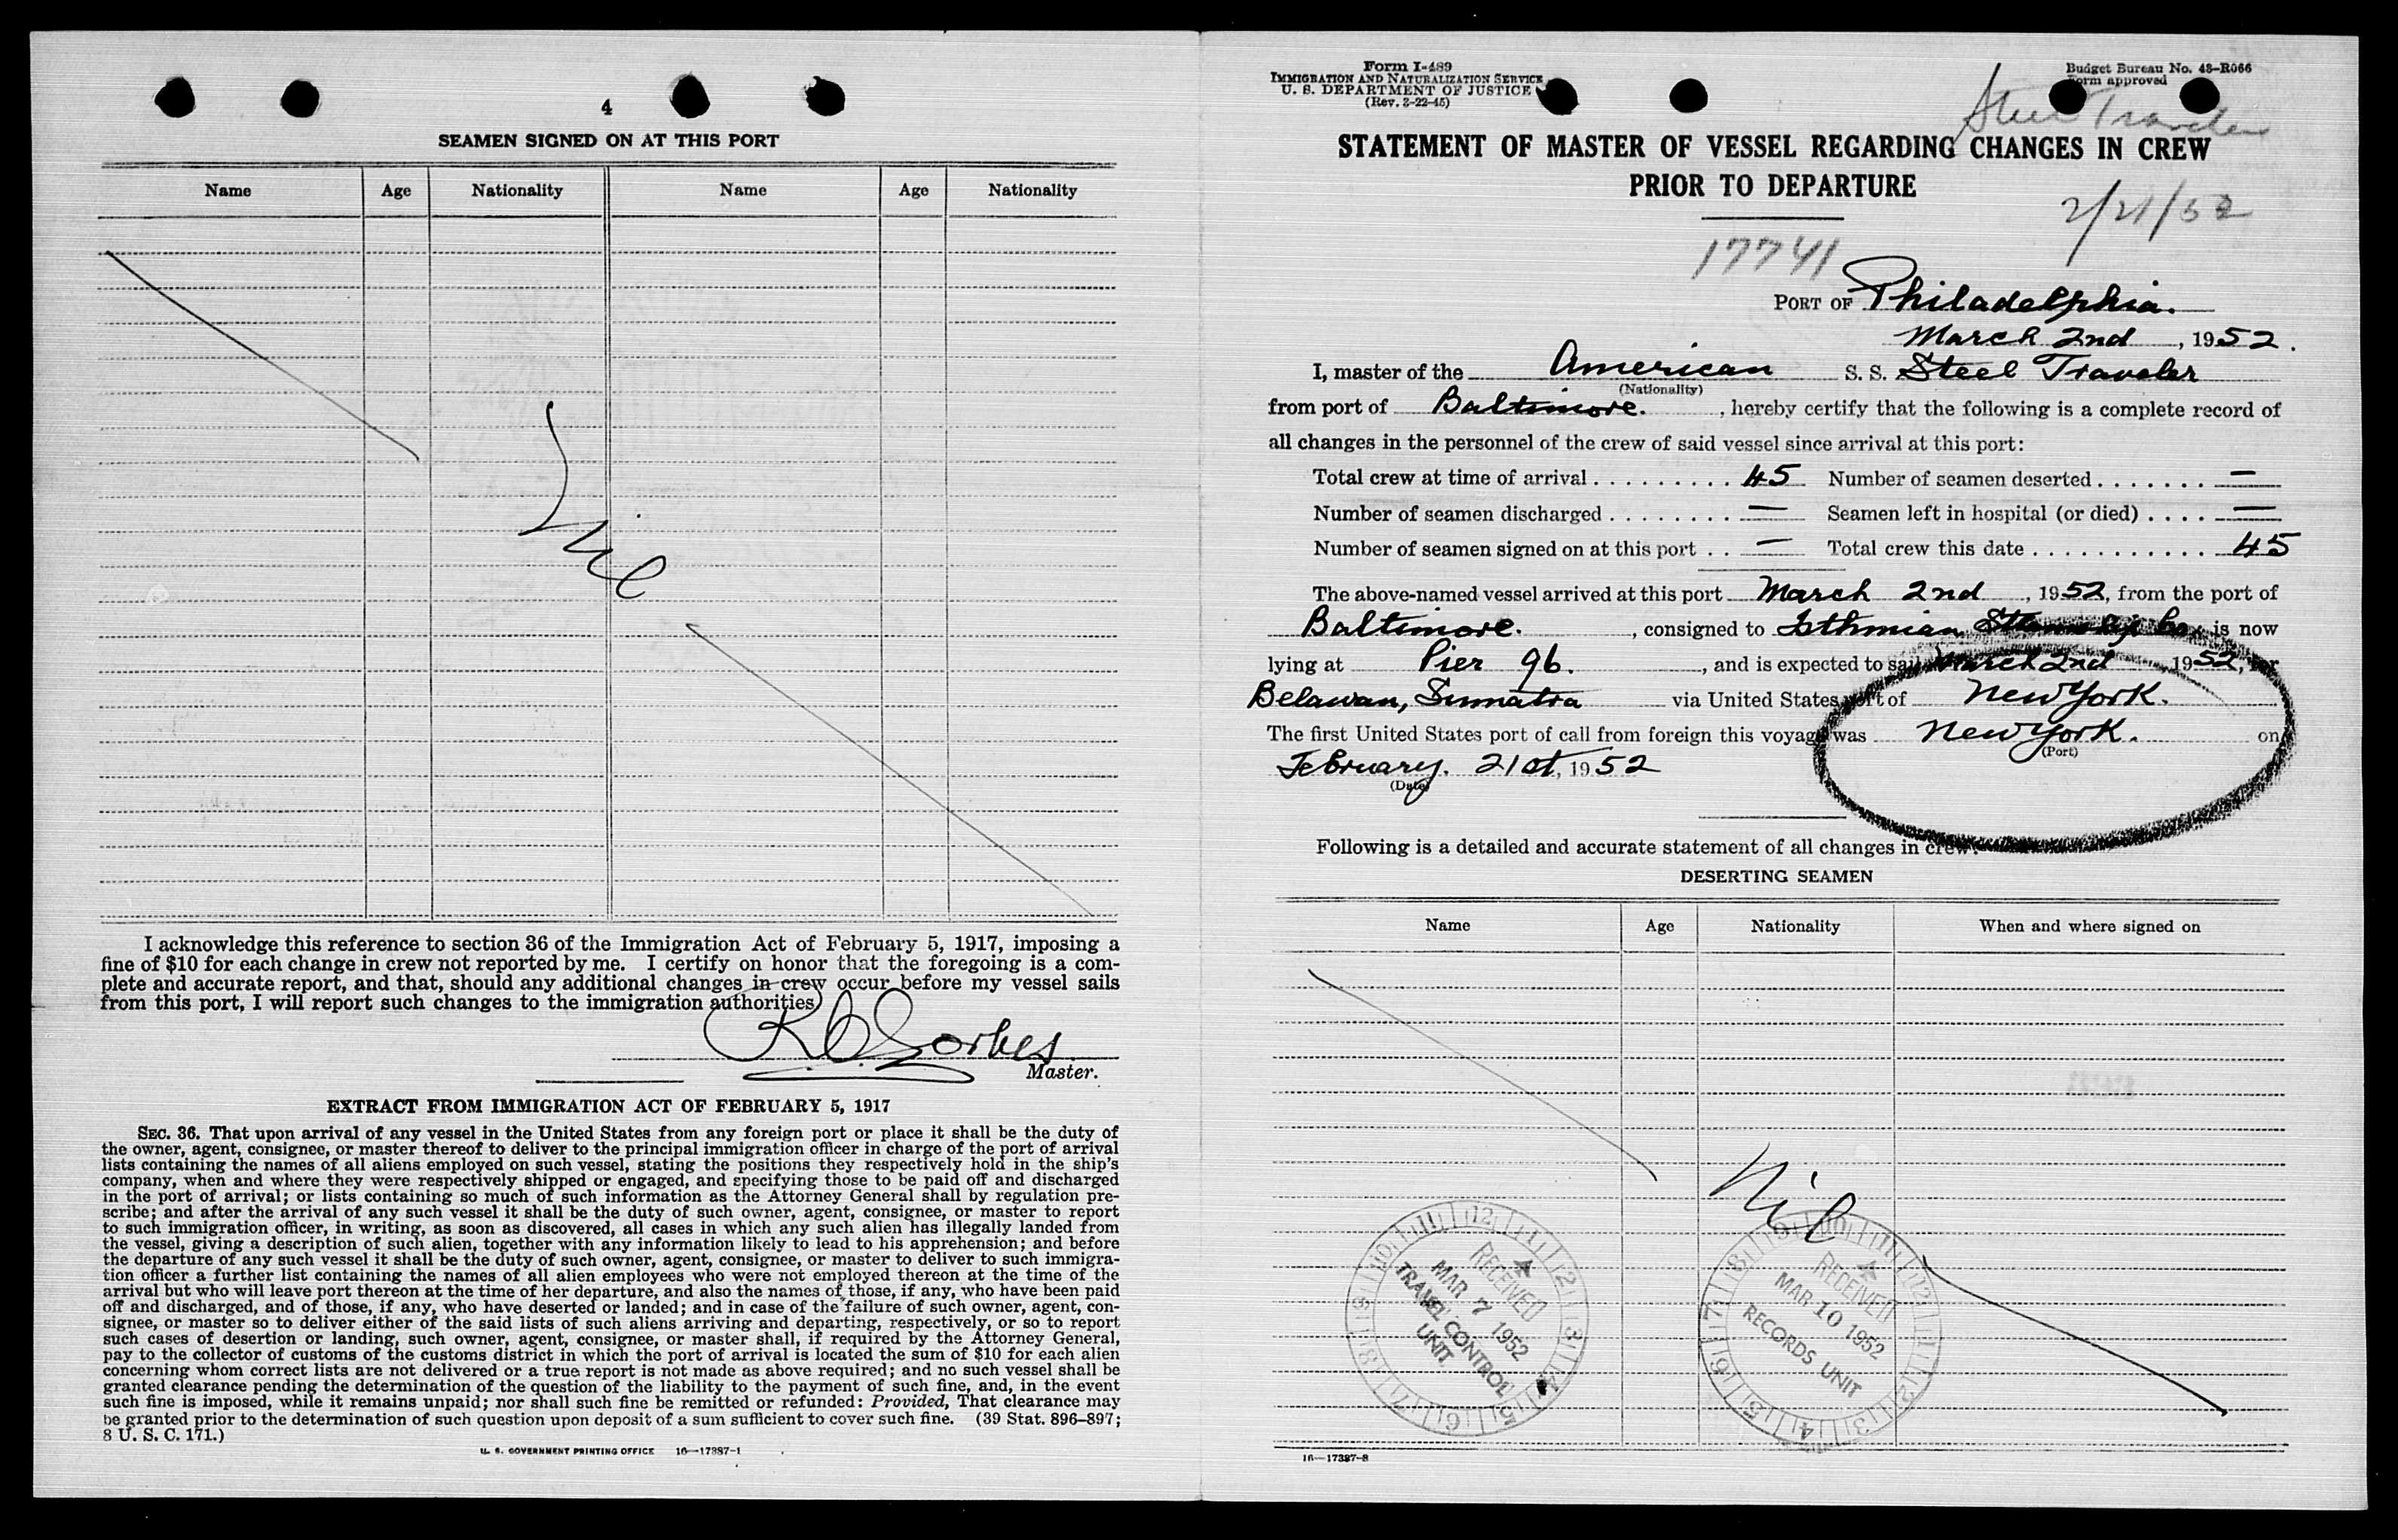 4
SEAMEN SIGNED ON AT THIS PORT
Name Age Nationality Name Age Nationality
Nil
I acknowledge this reference to section 36 of the Immigration Act of February 5, 1917, imposing a
fine of $10 for each change in crew not reported by me. I certify on honor that the foregoing is a com-
plete and accurate report, and that, should any additional changes in crew occur before my vessel sails
from this port, I will report such changes to the immigration authorities.
Forbes
Master.
EXTRACT FROM IMMIGRATION ACT OF FEBRUARY 5, 1917
SEC. 36. That upon arrival of any vessel in the United States from any foreign port or place it shall be the duty of
the owner, agent, consignee, or master thereof to deliver to the principal immigration officer in charge of the port of arrival
lists containing the names of all aliens employed on such vessel, stating the positions they respectively hold in the ship's
company, when and where they were respectively shipped or engaged, and specifying those to be paid off and discharged
in the port of arrival; or lists containing so much of such information as the Attorney General shall by regulation pre-
scribe; and after the arrival of any such vessel it shall be the duty of such owner, agent, consignee, or master to report
to such immigration officer, in writing, as soon as discovered, all cases in which any such alien has illegally landed from
the vessel, giving a description of such alien, together with any information likely to lead to his apprehension; and before
the departure of any such vessel it shall be the duty of such owner, agent, consignee, or master to deliver to such immigra-
tion officer a further list containing the names of all alien employees who were not employed thereon at the time of the
arrival but who will leave port thereon at the time of her departure, and also the names of those, if any, who have been paid
off and discharged, and of those, if any, who have deserted or landed; and in case of the failure of such owner, agent, con-
signee, or master so to deliver either of the said lists of such aliens arriving and departing, respectively, or so to report
such cases of desertion or landing, such owner, agent, consignee, or master shall, if required by the Attorney General,
pay to the collector of customs of the customs district in which the port of arrival is located the sum of $10 for each alien
concerning whom correct lists are not delivered or a true report is not made as above required; and no such vessel shall be
granted clearance pending the determination of the question of the liability to the payment of such fine, and, in the event
such fine is imposed, while it remains unpaid; nor shall such fine be remitted or refunded: Provided, That clearance may
be granted prior to the determination of such question upon deposit of a sum sufficient to cover such fine. (39 Stat. 896-897;
8 U. S. C. 171.)
U. S. GOVERNMENT PRINTING OFFICE 16—17387-1
Form I-489
IMMIGRATION AND NATURALIZATION SERVICE
U. S. DEPARTMENT OF JUSTICE
(Rev. 2-22-45)
Budget Bureau No. 43-R066
Form approved
Steel Traveler
STATEMENT OF MASTER OF VESSEL REGARDING CHANGES IN CREW
PRIOR TO DEPARTURE
2/21/52
17741
PORT OF Philadelphia.
March 2nd, 1952.
I, master of the American S. S. Steel Traveler
(Nationality)
from port of Baltimore., hereby certify that the following is a complete record of
all changes in the personnel of the crew of said vessel since arrival at this port:
Total crew at time of arrival . . . . . . . . . . 45 Number of seamen deserted . . . . . . . —
Number of seamen discharged . . . . . . . . — Seamen left in hospital (or died) . . . . —
Number of seamen signed on at this port . . — Total crew this date . . . . . . . . . . . . 45
The above-named vessel arrived at this port March 2nd, 1952, from the port of
Baltimore., consigned to Isthmian Steamship Co., is now
lying at Pier 96., and is expected to sail March 2nd 1952, for
Belawan, Sumatra via United States port of New York.
The first United States port of call from foreign this voyage was New York. on
(Port)
February. 21st, 1952
(Date)
Following is a detailed and accurate statement of all changes in crew:
DESERTING SEAMEN
Name Age Nationality When and where signed on
Nil
RECEIVED
MAR 7 1952
TRAVEL CONTROL
UNIT
RECEIVED
MAR 10 1952
RECORDS UNIT
16—17387-8